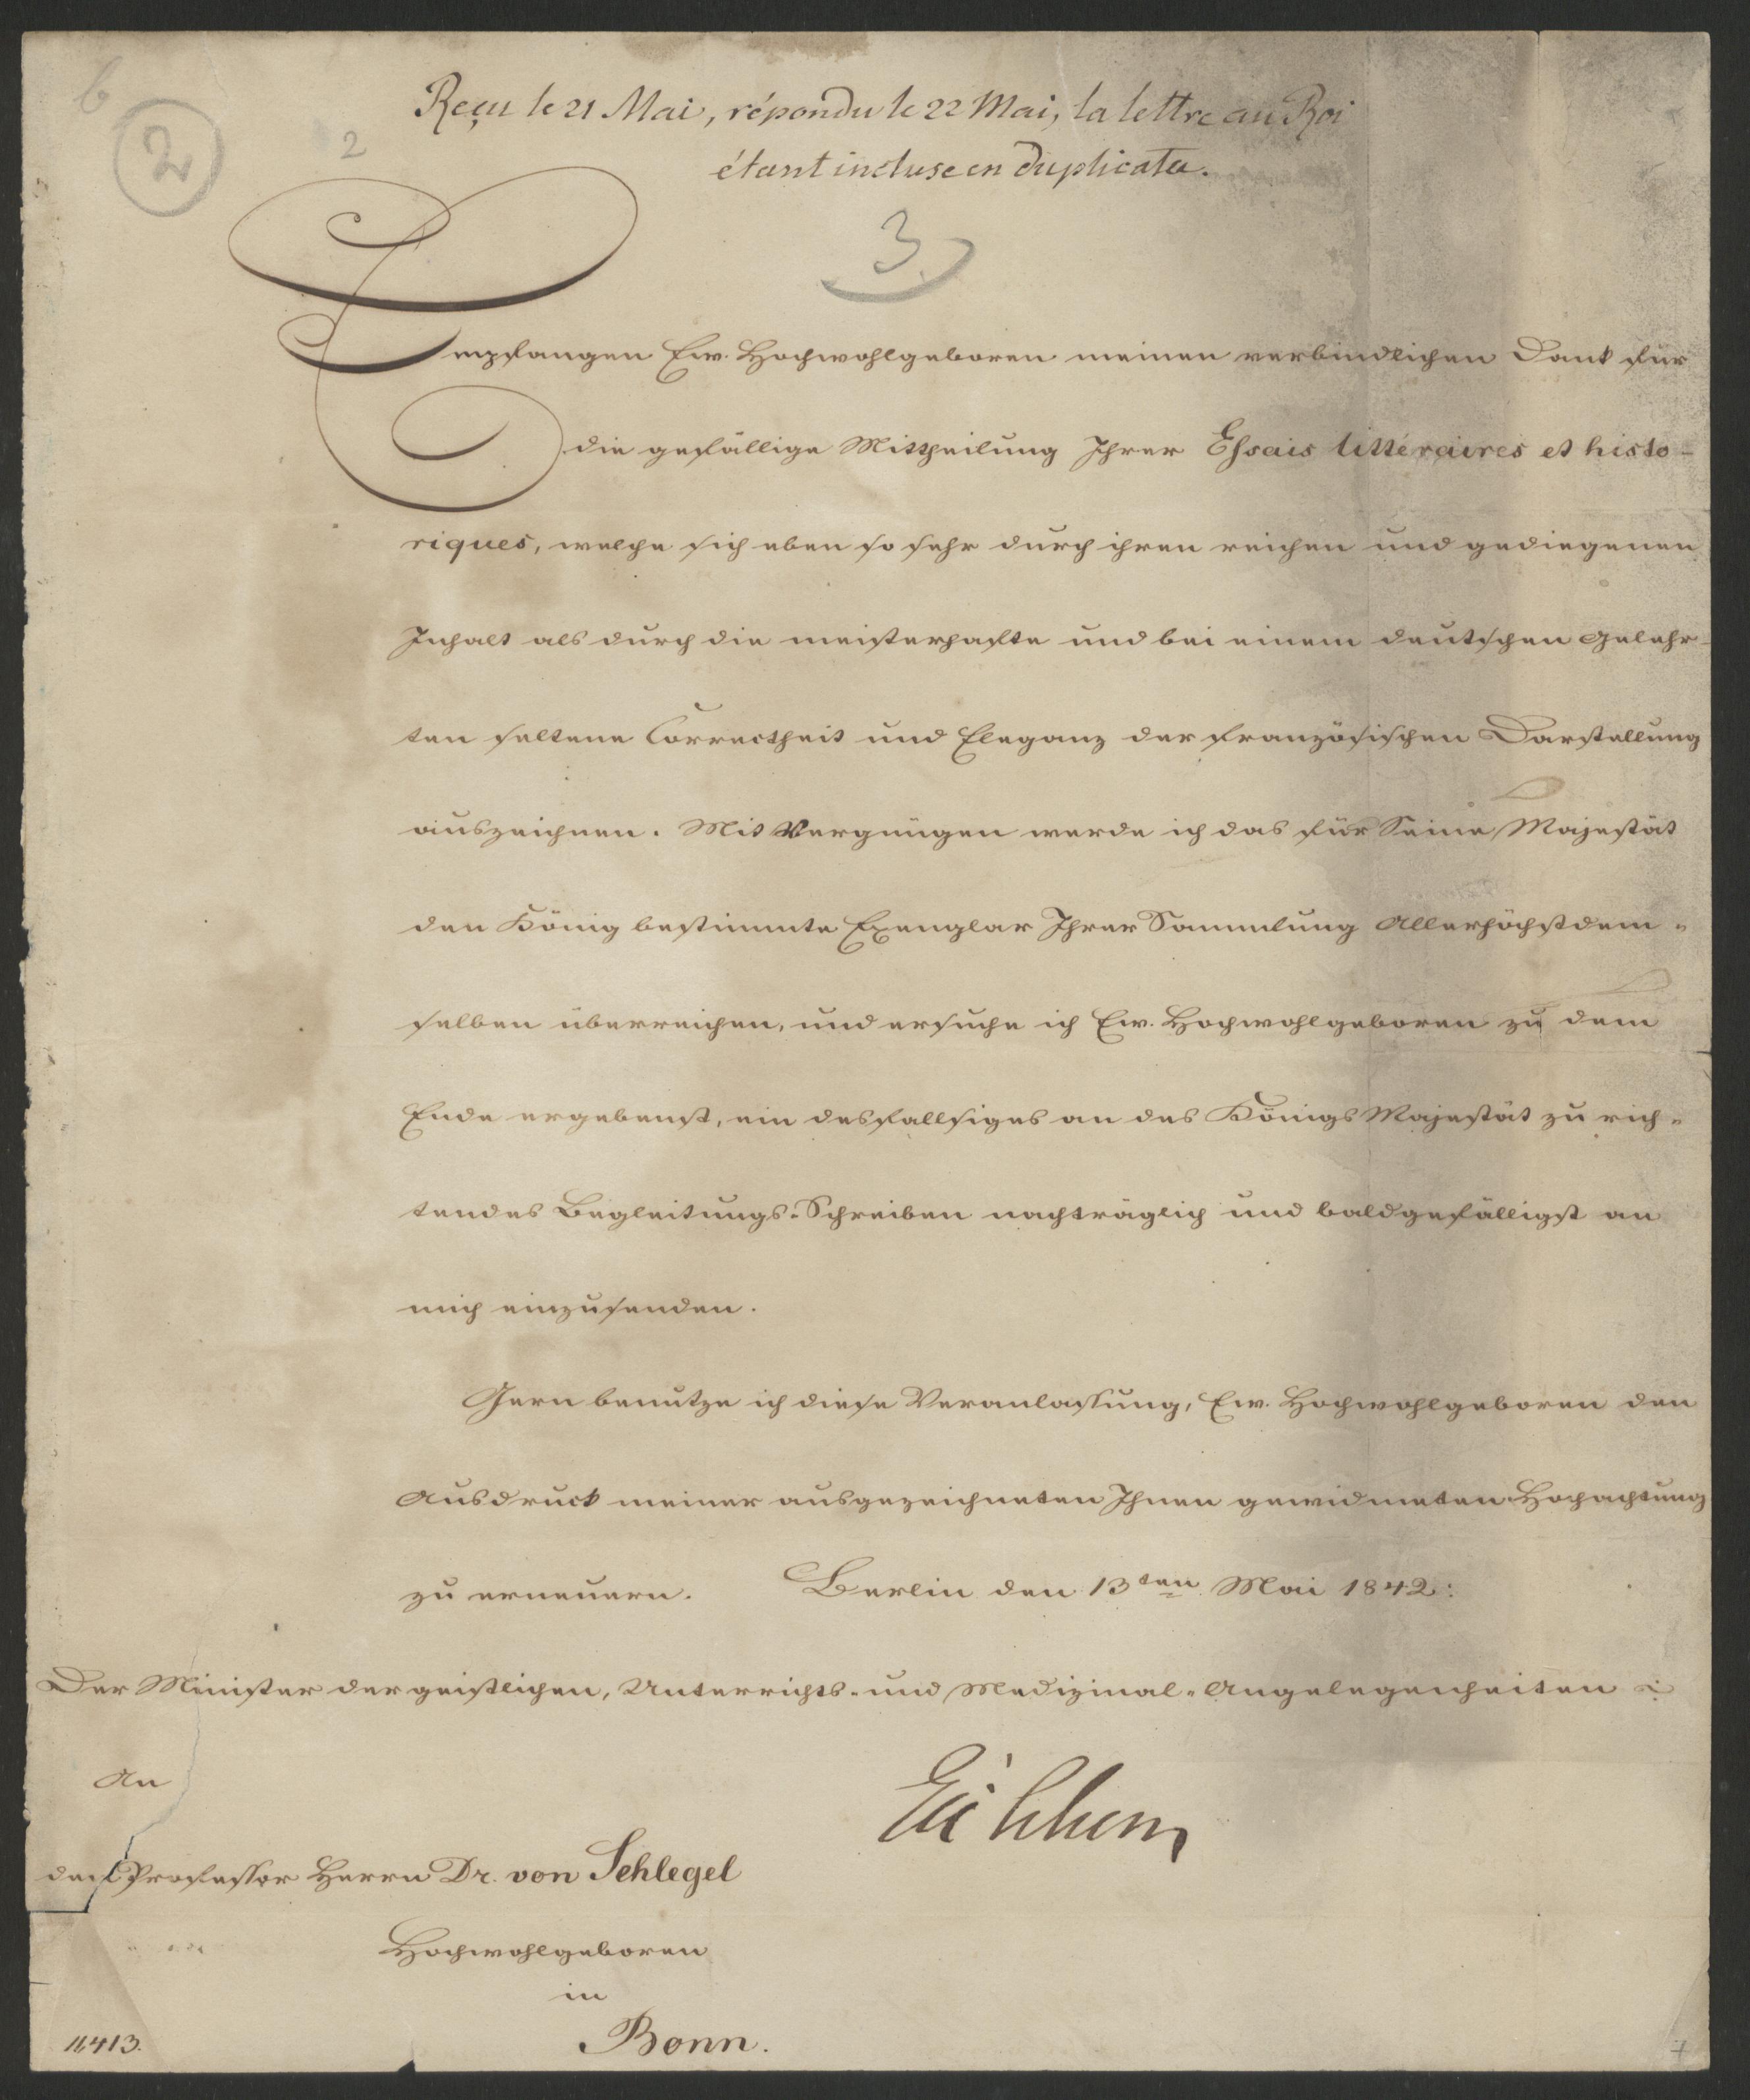 6
2
2
Reçu le 21 Mai, répondu le 22 Mai, la lettre au Roi
étant incluse en duplicata.
3.
Empfangen Ew. Hochwohlgeboren meinen verbindlichen Dank für
die gefällige Mittheilung Ihrer Essais littéraires et histo-
riques, welche sich eben so sehr durch ihren reichen und gediegenen
Inhalt als durch die meisterhafte und bei einem deutschen Gelehr-
ten seltene Correctheit und Eleganz der französischen Darstellung
auszeichnen. Mit Vergnügen werde ich das für Seine Majestät
den König bestimmte Exemplar Ihrer Sammlung Allerhöchstdem-
selben überreichen, und ersuche ich Ew. Hochwohlgeboren zu dem
Ende ergebenst, ein desfallsiges an des Königs Majestät zu rich-
tendes Begleitungs-Schreiben nachträglich und baldgefälligst an
mich einzusenden.
Gern benutze ich diese Veranlassung, Ew. Hochwohlgeboren den
Ausdruck meiner ausgezeichneten Ihnen gewidmeten Hochachtung
zu erneuern. Berlin den 13ten Mai 1842.
Der Minister der geistlichen, Unterrichts- und Medizinal-Angelegenheiten
Eichhorn
An
den Professor Herrn Dr. von Schlegel
Hochwohlgeboren
in
Bonn.
11,413.
7